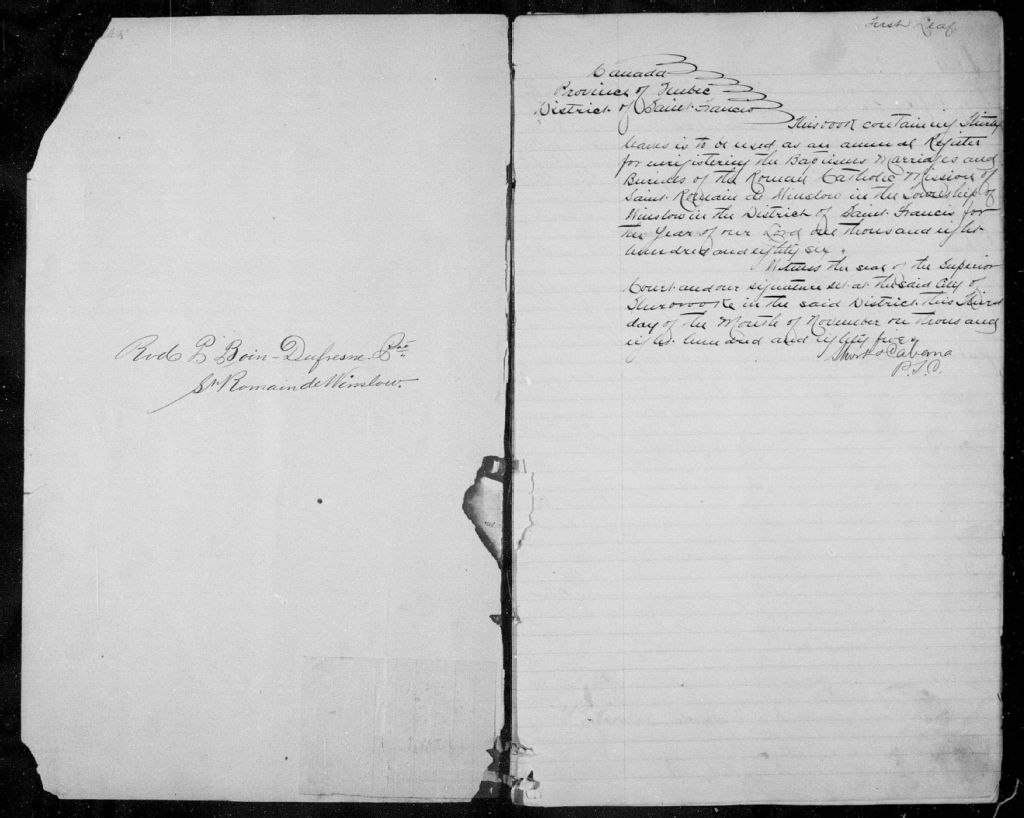 Revd P Boin-Dufresne Ptre
St Romain de Winslow
First Leaf
Canada
Province of Quebec
District of Saint Francis
This book containing Thirty
leaves is to be used as an annual Register
for enregistering the Baptisms Marriages and
Burials of the Roman Catholic Mission of
Saint Romain de Winslow in the Township of
Winslow in the District of Saint Francis for
the Year of our Lord one thousand eight
hundred and eighty six.
Witness the seal of the Superior
Court and our signature set at the said City of
Sherbrooke in the said District this Third
day of the Month of November on thousand
eight hundred and eighty five
Short & Cabana
P.S.C.